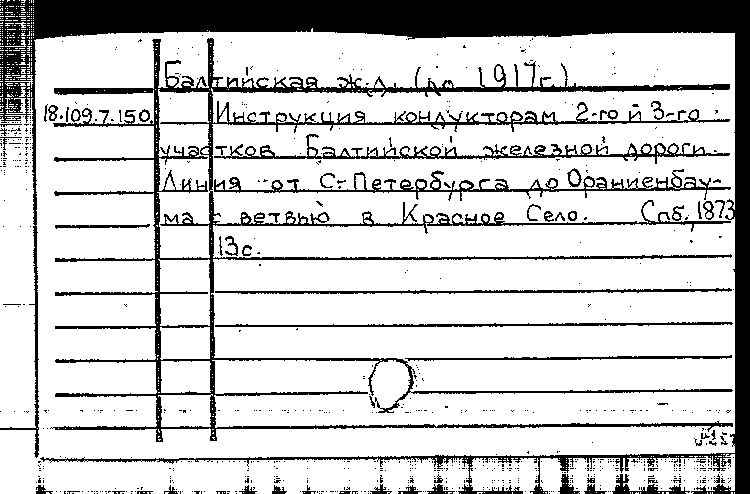 Балтийская ж.д. (до 1917г.).
18.109.7.150. Инструкция кондукторам 2-го и 3-го
участков Балтийской железной дороги.
Линия от С-Петербурга до Ораниенбау-
ма с ветвью в Красное Село. Спб, 1873
13с.